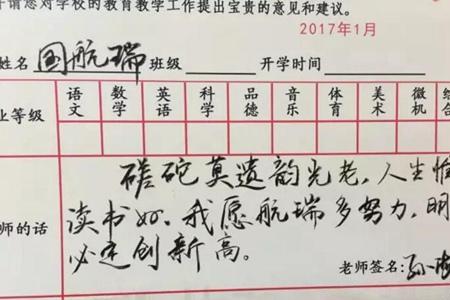 请您对学校的教育教学工作提出宝贵的意见和建议。
2017年1月
姓名 国航瑞 班级 开学时间
业等级 语文 数学 英语 科学 品德 音乐 体育 美术 微机 综合
师的话
磋砣莫遗韵光老,人生惟
读书好.我愿航瑞多努力,明
必定创新高。
老师签名:孙